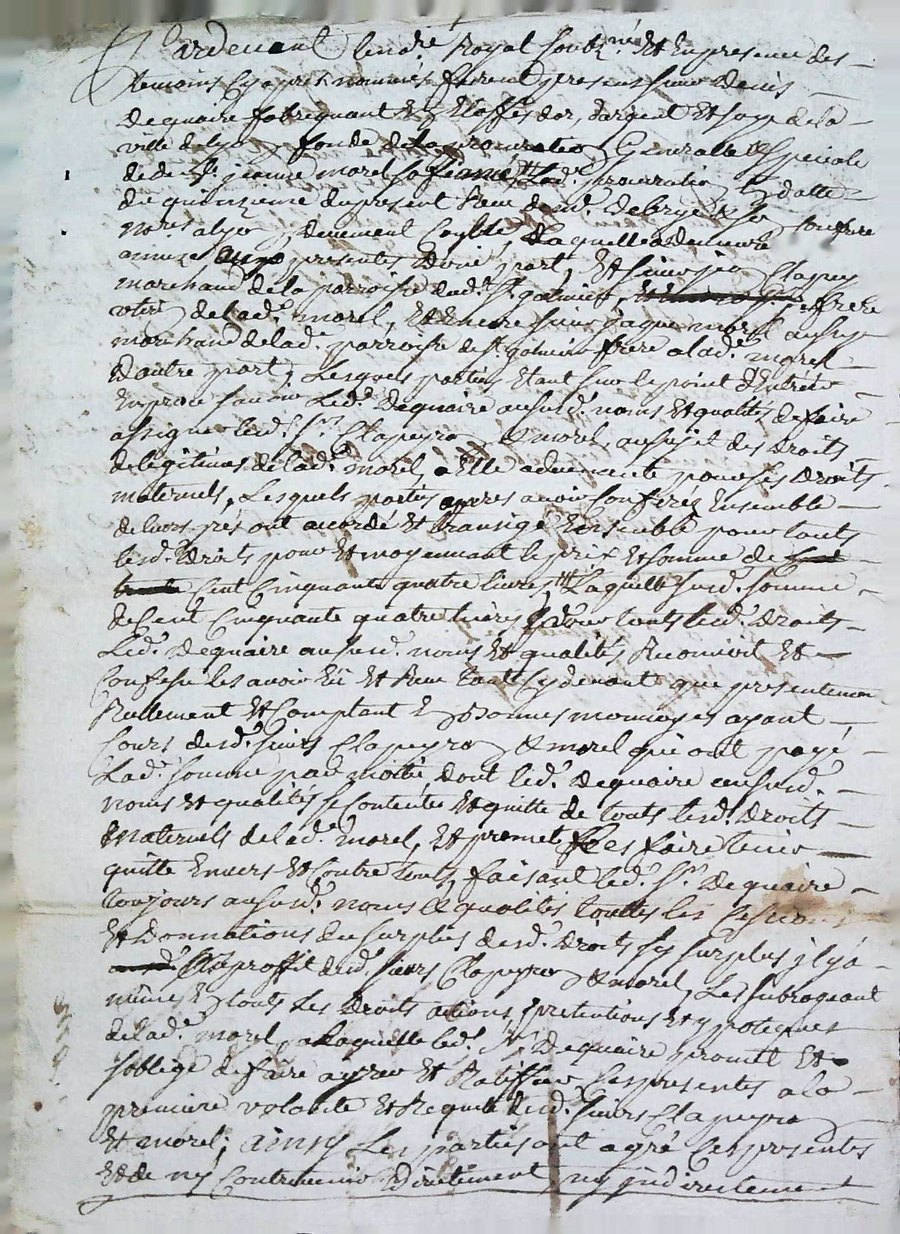 Pardevant le no.re Royal soubz.né Et En presence des
temoins cy apres nommés furent presents sieur Denis
Dequaire fabriquant En Etoffes d'or, d'argent Et soye de la
ville de lyon fondé de la procuration Generalle & speciale
de d.e jeanne morel sa femme lad. procuration En datte
du quinzieme du present Receue lad. Debrye &
no.res a lyon, deuement Controllé, laquelle demeure
annexé aux presentes d'une part, Et sieur jean Clapeyron
marchand de la parroisse de S.t galmier, beaufrere
de lad. morel, Et Encore sieur jaque morel aussy
marchand de lad. parroisse de S.t galmier frere a lad. morel
D'autre part, Lesquels parties Etant sur le point d'Entrer
En proces sur ce que Led. Dequaire ausd. noms Et qualités de faire
assigner lesd. S.rs Clapeyron & morel, au sujet des Droits
de legitimes de lad. morel, a Elle advenante pour ses Droits
maternels, Lesquels parties apres avoir Conferez Ensemble
de leurs grés ont accordé Et transigé Ensemble pour touts
lesd. Droits pour Et moyennant le prix Et somme de
Cent Cinquante quatre livres, Laquelle susd. somme
de Cent Cinquante quatre livres pour touts lesd. Droits
Led. Dequaire ausd. noms Et qualités Reconnoit Et
Confesse les avoir Eu Et Receu tant Cy devant que presentement
Reellement Et Comptant En Bonnes monnoyes ayant
Cours desd. sieurs Clapeyron & morel qui ont payé
Lad. somme par moitié dont led. Dequaire ausd.
noms Et qualités se Contente Et quitte de touts lesd. Droits
Maternels de lad. morel, Et promet les faire tenir
quitte Envers Et Contre touts, faisant led. S.r Dequaire
toujours ausd. noms & qualités touttes les Cessions
Et Donnations du surplus desd. Droits sy surplus il y a
Au proffit desd. sieurs Clapeyron & morel, Les subrogeant
même En touts Les Droits actions, pretentions Et ypoteques
de lad. morel, a laquelle led. S.r Dequaire promet Et
s'oblige de faire agreer Et Ratiffier Ces presentes a la
premiere volonté Et Requete desd. sieurs Clapeyron
Et morel; ainsy Les parties ont agré Ces presentes
Et de n'y Contrevenir Directement, ny indirectement